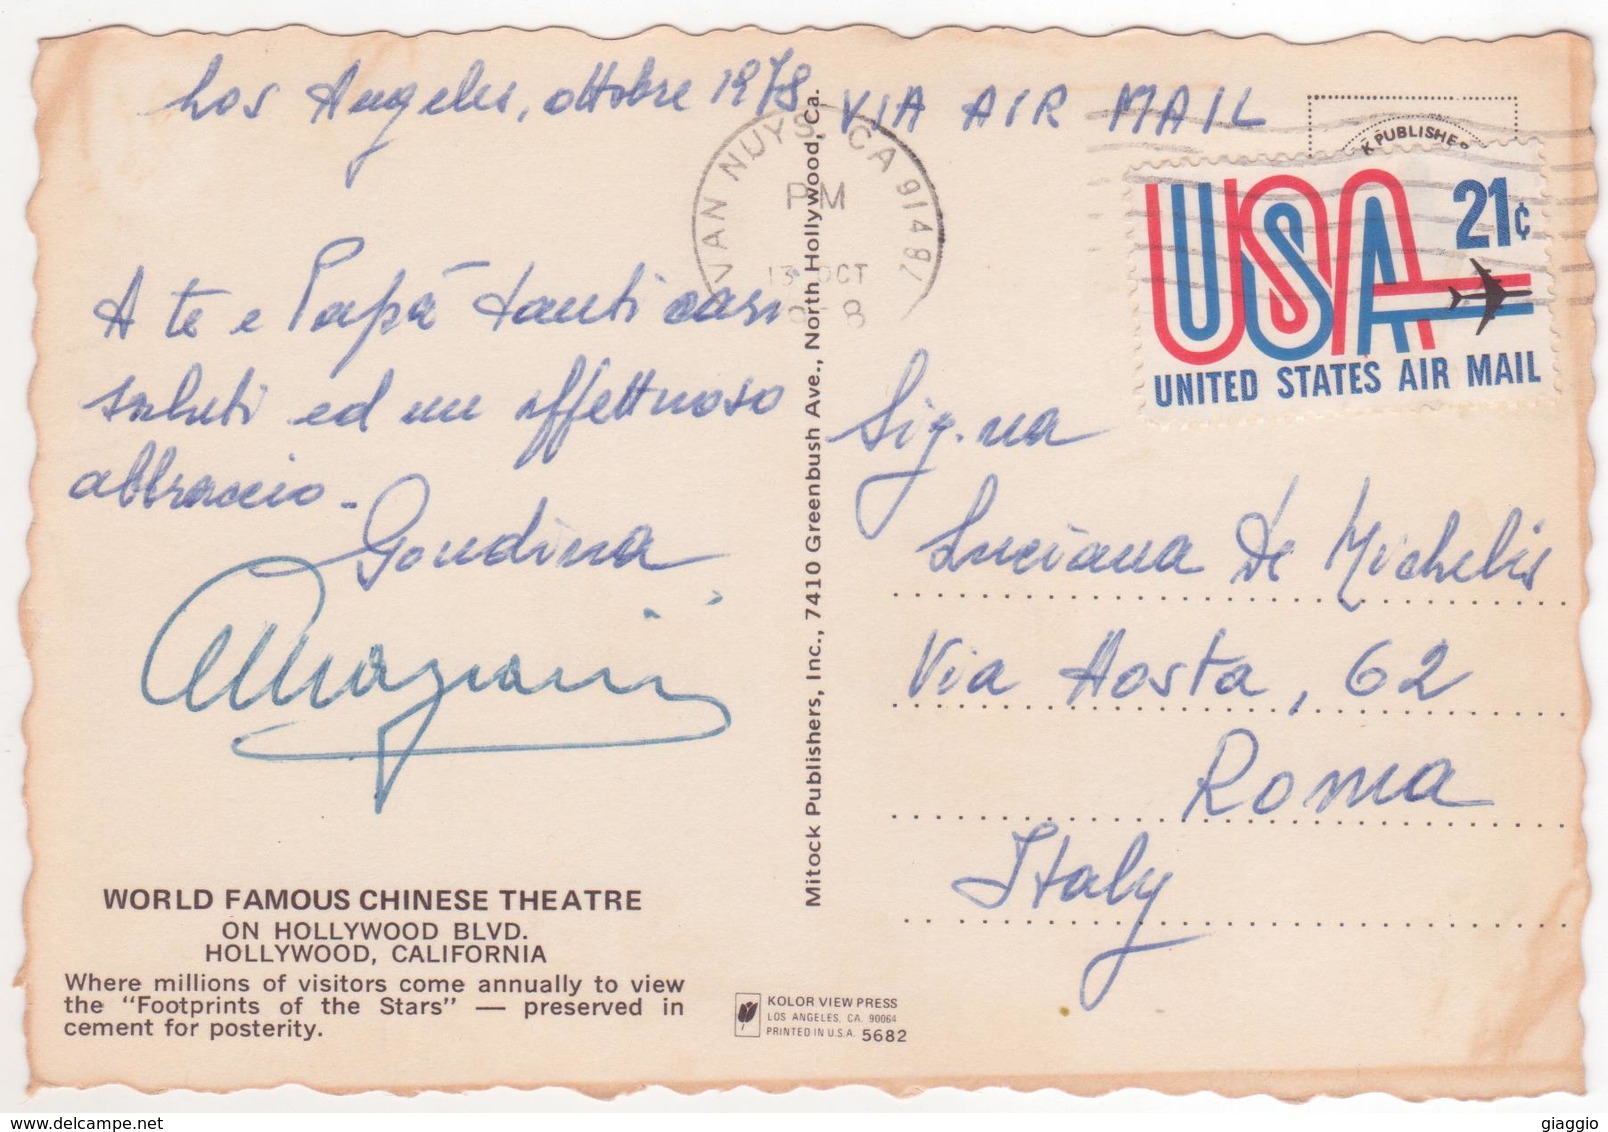 Los Angeles, ottobre 1978
VIA AIR MAIL
A te e Papà tanti cari
saluti ed un affettuoso
abbraccio.
VAN NUYS CA
PM
13 OCT
K PUBLISHE
USA 21¢
UNITED STATES AIR MAIL
Sig.na
Luciana De Michelis
Via Aosta, 62
Roma
Italy
Mitock Publishers, Inc., 7410 Greenbush Ave., North Hollywood, Ca.
WORLD FAMOUS CHINESE THEATRE
ON HOLLYWOOD BLVD.
HOLLYWOOD, CALIFORNIA
Where millions of visitors come annually to view
the "Footprints of the Stars" — preserved in
cement for posterity.
KOLOR VIEW PRESS
LOS ANGELES, CA. 90064
PRINTED IN U.S.A. 5682
giaggio
© www.delcampe.net